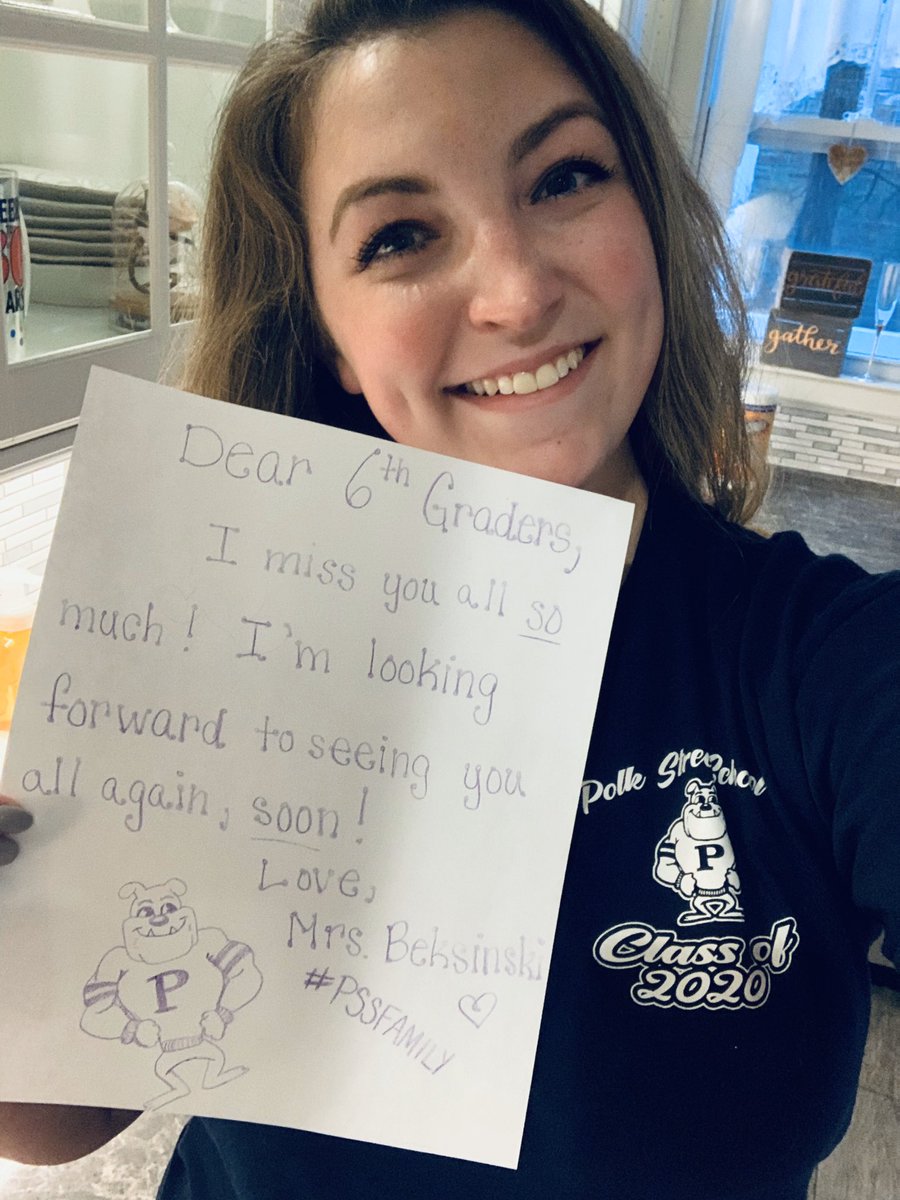 Dear 6th Graders,
I miss you all so
much! I'm looking
forward to seeing you
all again, soon!
Love,
Mrs. Beksinski
#PSSFAMILY
P
Polk Street School
P
Class of
2020
grateful
gather